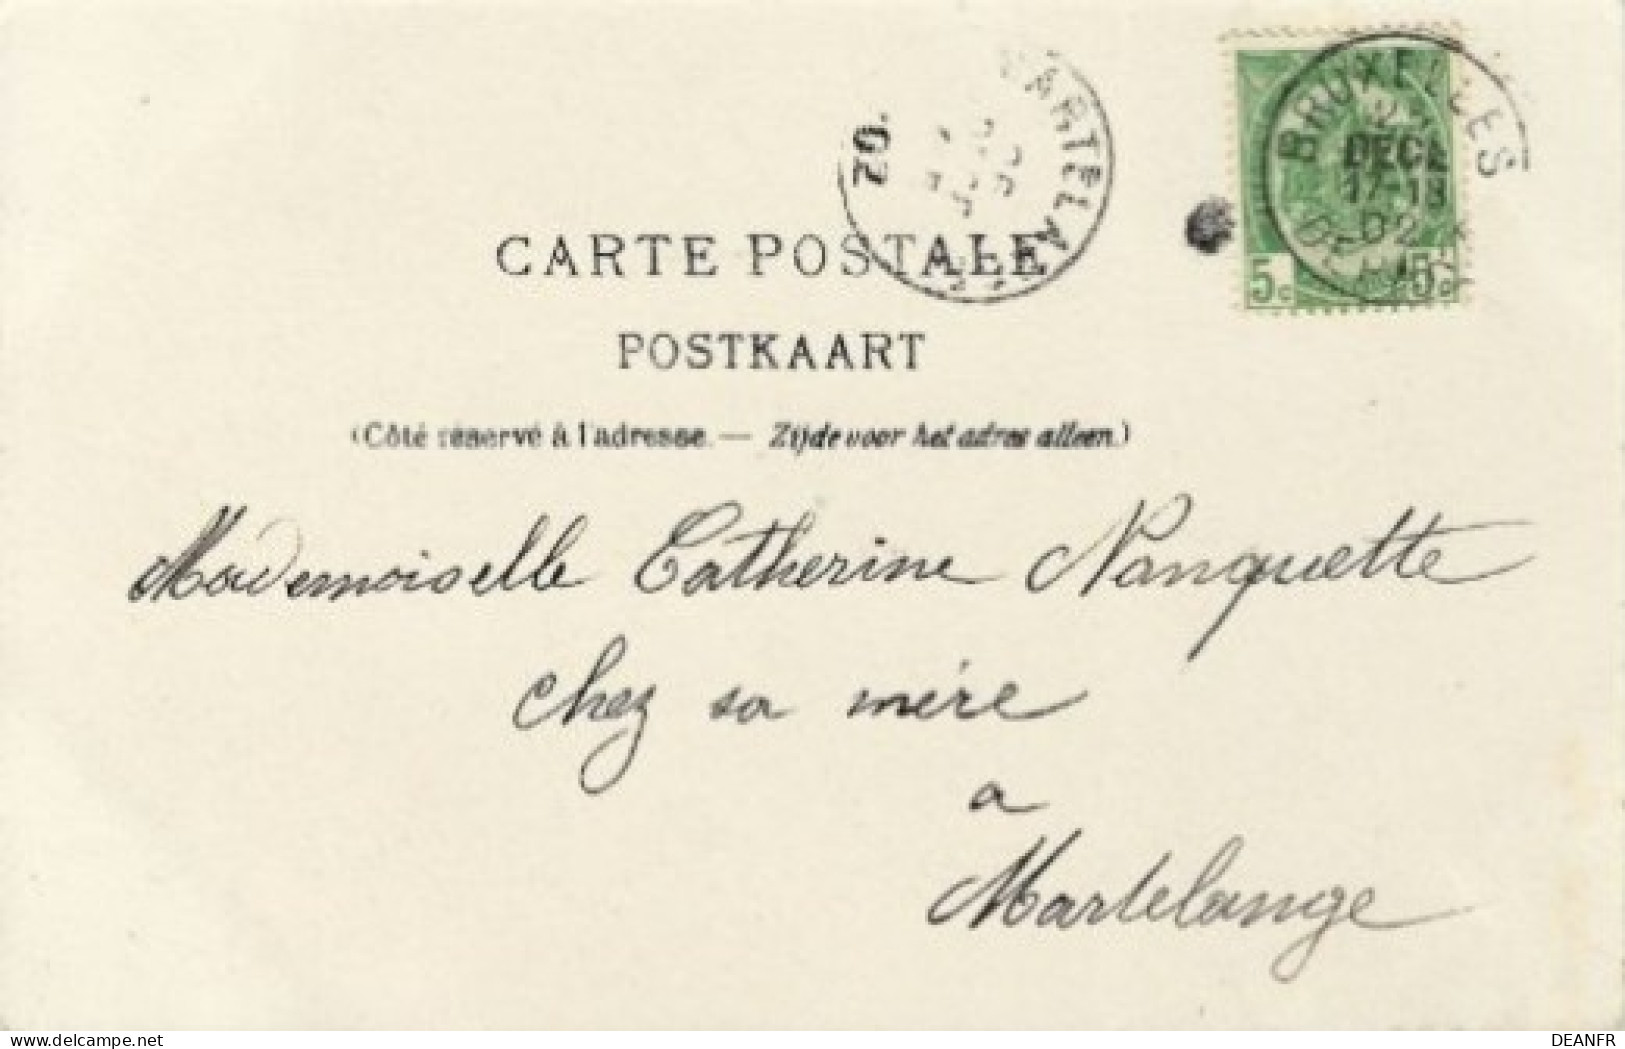 BRUXELLES
DECE
17-18
02
5c 5c
MARTELA
02.
CARTE POSTALE
POSTKAART
(Côté réservé à l'adresse. — Zijde voor het adres alleen.)
Mademoiselle Catherine Nanquette
chez sa mère
a
Martelange
DEANFR